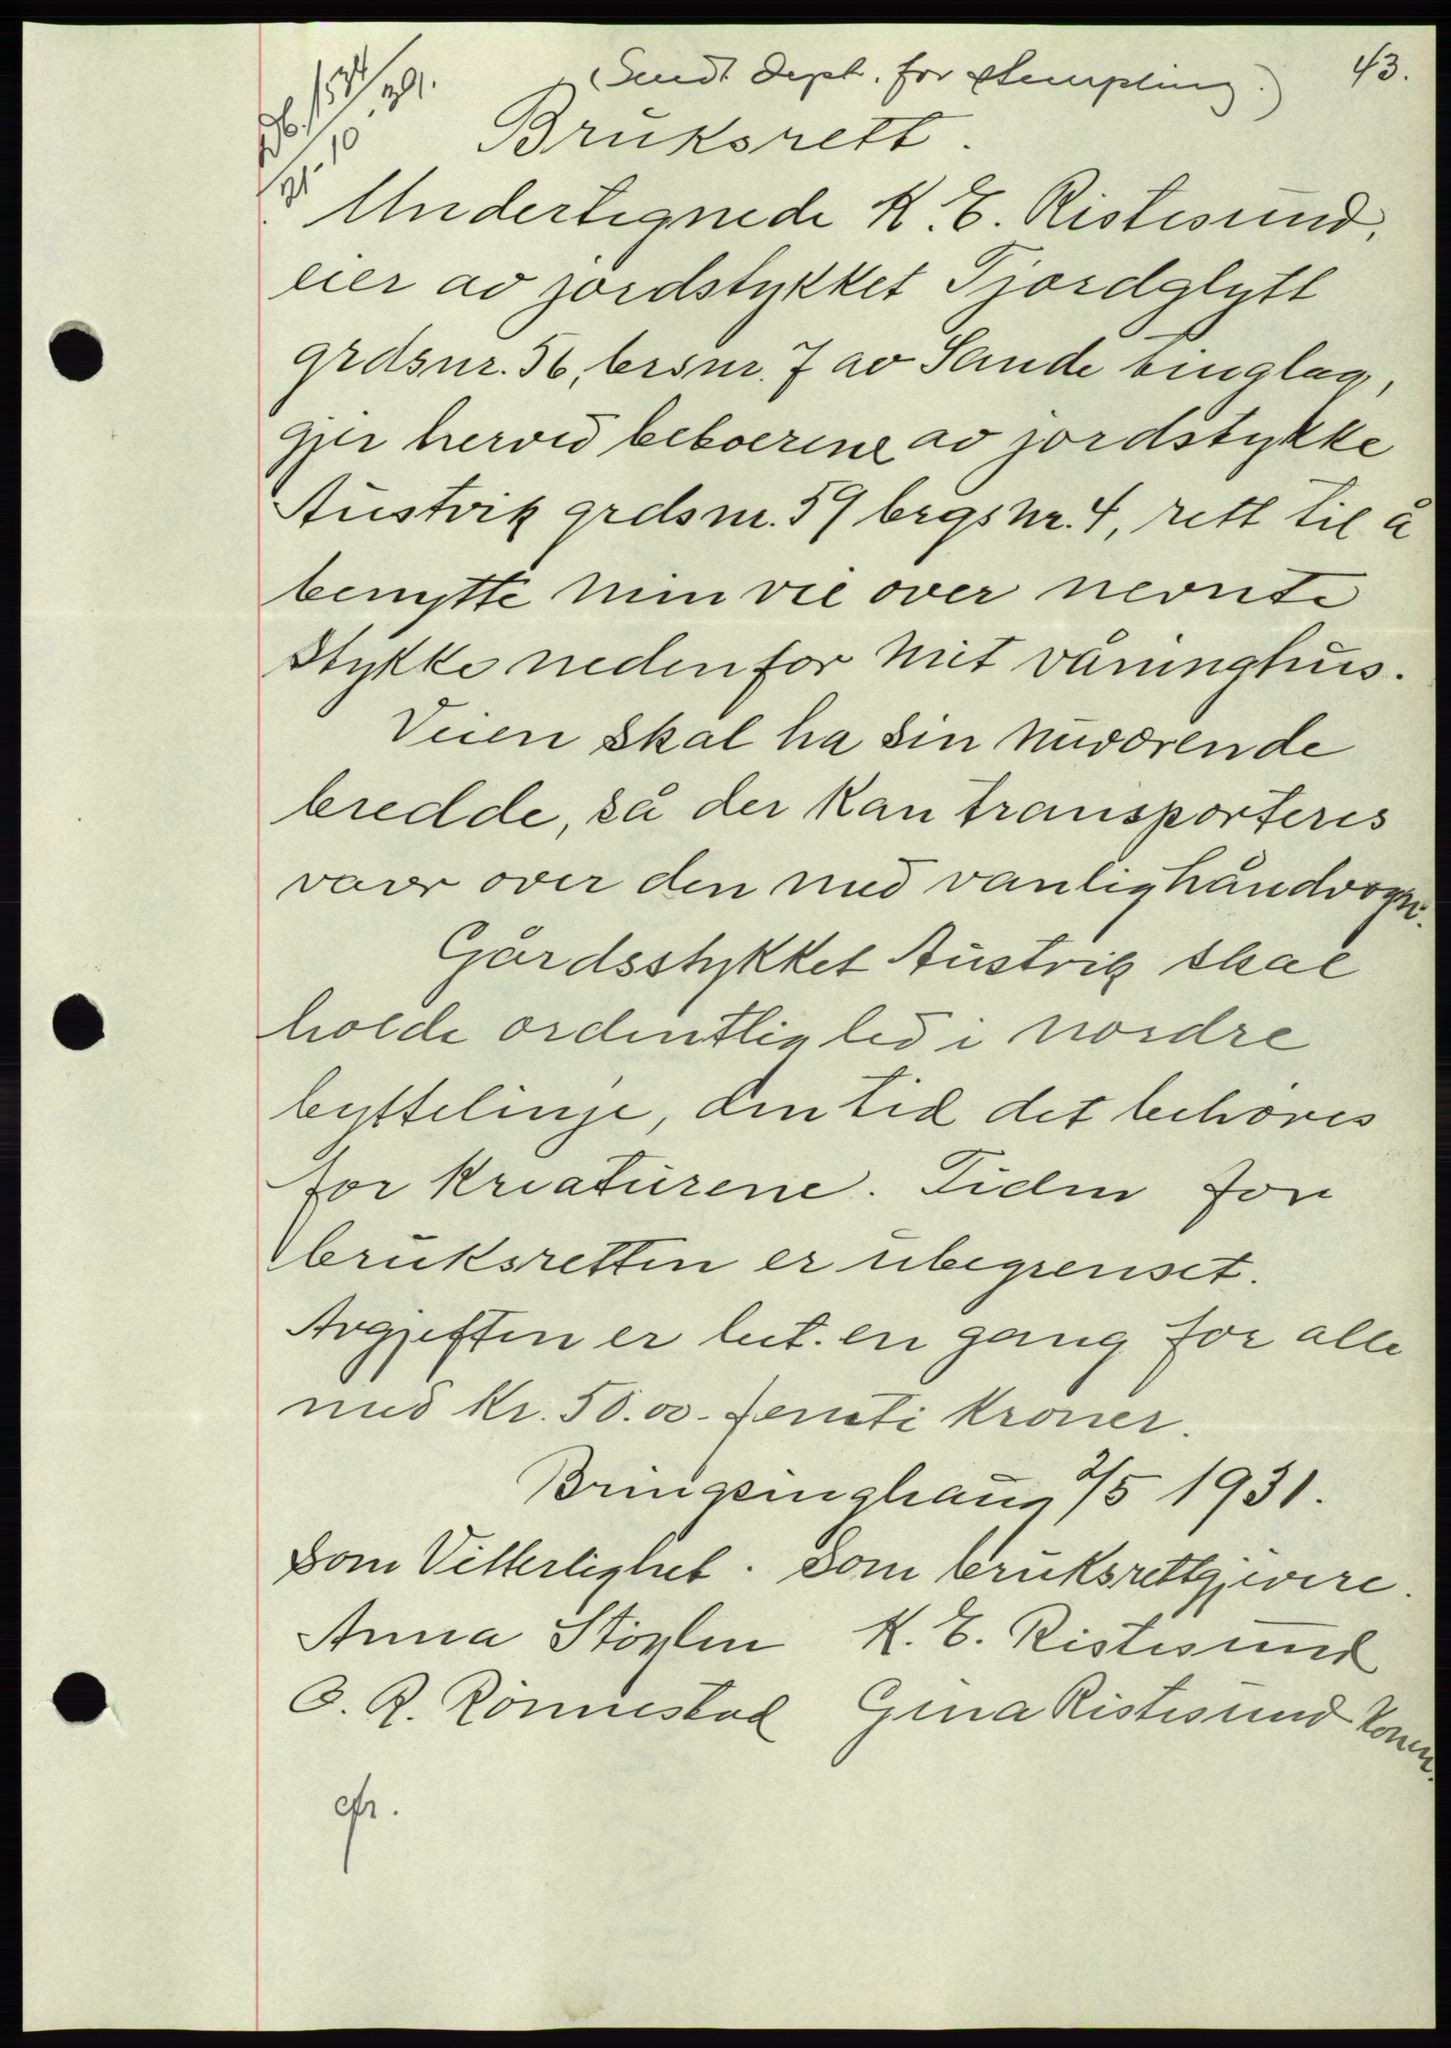 43.
(Sendt dept. for stempling.)
Db. 1534/39.
21-10-
Bruksrett.
Undertegnede K. E. Ristesund,
eier av jordstykket Fjordglytt
grdsnr. 56, brsnr. 7 av Sande tinglag,
gjir herved beboerene av jordstykke
Austvik grdsnr. 59 brgsnr. 4, rett til å
benytte min vei over nevnte
stykke nedenfor mit våninghus.
Veien skal ha sin nuværende
bredde, så der kan transporteres
varer over den med vanlig håndvogn.
Gårdsstykket Austvik skal
holde ordentlig led i nordre
byttelinje, den tid det behøves
for kreaturene. Tiden for
bruksretten er ubegrenset.
Avgjeften er bet. en gang for alle
med kr. 50.00 - femti kroner.
Bringsinghaug 2/5 1931.
Som Vitterlighet. Som bruksrettgivere.
Anna Støylen K. E. Ristesund
O. R. Rønnestad Gina Ristesund konen.
cfr.